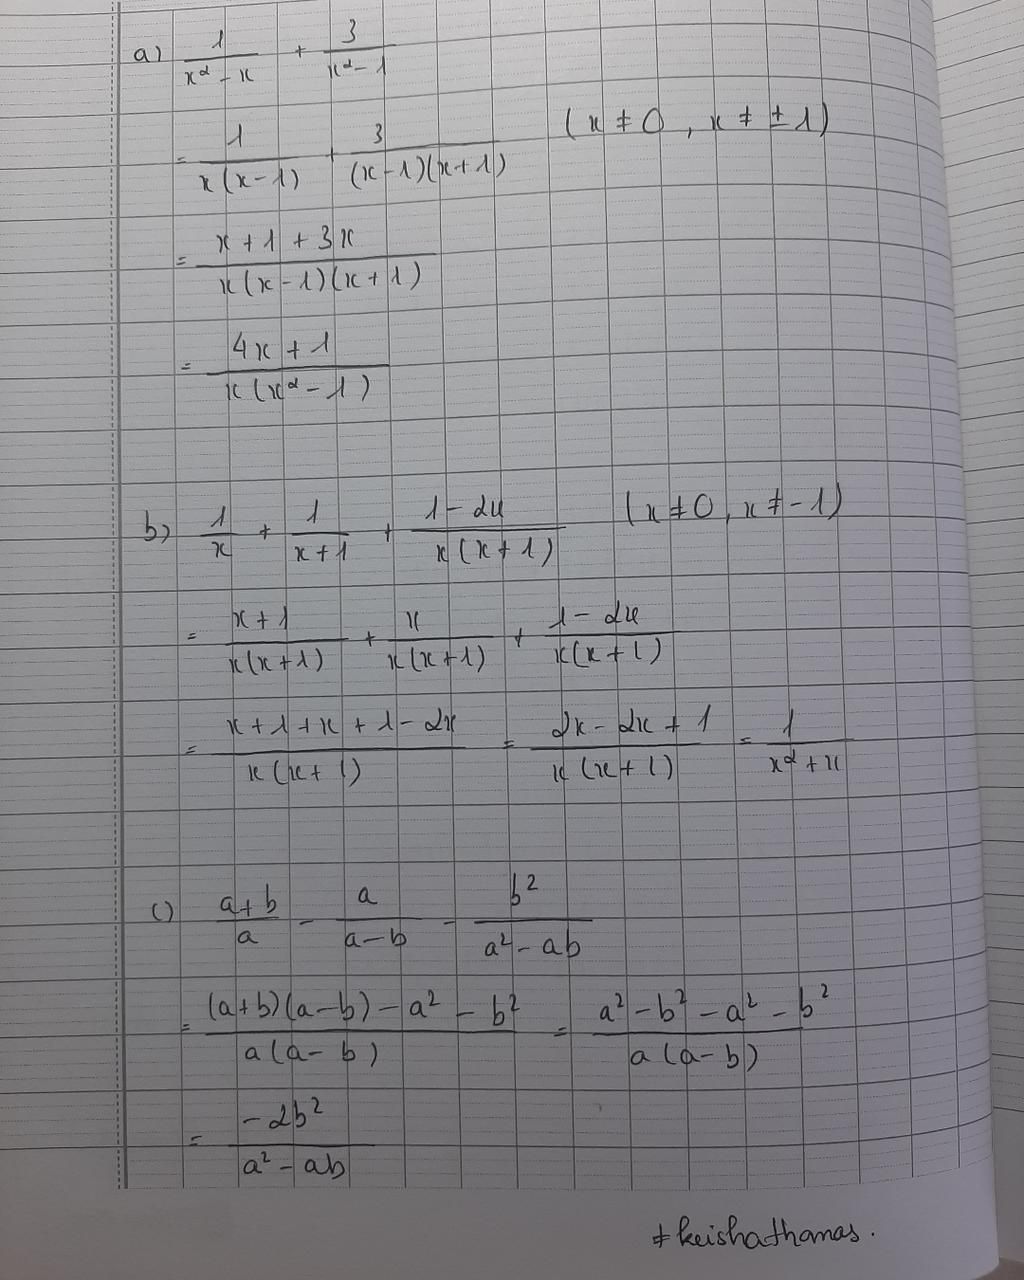 a) 1/(x² - x) + 3/(x² - 1)
= 1/(x(x-1)) + 3/((x-1)(x+1)) (x ≠ 0, x ≠ ± 1)
= (x + 1 + 3x)/(x(x-1)(x+1))
= (4x + 1)/(x(x² - 1))
b) 1/x + 1/(x+1) + (1 - 2x)/(x(x+1)) (x ≠ 0, x ≠ -1)
= (x+1)/(x(x+1)) + x/(x(x+1)) + (1 - 2x)/(x(x+1))
= (x + 1 + x + 1 - 2x)/(x(x+1)) = (2x - 2x + 1)/(x(x+1)) = 1/(x² + x)
c) (a+b)/a - a/(a-b) - b²/(a² - ab)
= ((a+b)(a-b) - a² - b²)/(a(a-b)) = (a² - b² - a² - b²)/(a(a-b))
= (-2b²)/(a² - ab)
≠ keishathomas.